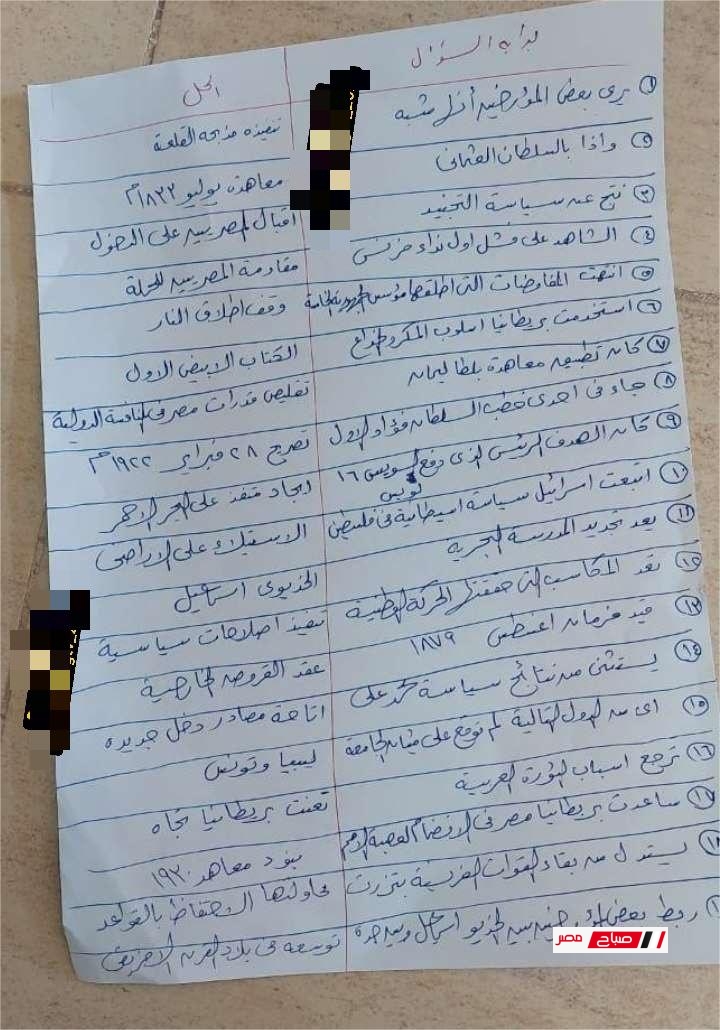 بداية السؤال
الحل
١ يرى بعض المؤرخين أنها شبه
تنفيذه مذبحة القلعة
٢ واذا بالسلطان العثمانى
معاهدة يوليو ١٨٣٣م
٣ نتج عن سياسة التجنيد
اقبال المصريين على الدخول
٤ الشاهد على فشل اول نداء فرنسى
مقاومة المصريين للحملة
٥ انتهت المفاوضات التى اطلقها مؤسس الجمهورية الخامسة
وقف اطلاق النار
٦ استخدمت بريطانيا اسلوب المكر والخداع
الكتاب الابيض الاول
٧ كان تطبيق معاهدة بلطا ليمان
تقليص قدرات مصر فى المنافسة الدولية
٨ جاء فى احدى خطب السلطان فؤاد الاول
تصريح ٢٨ فبراير ١٩٢٢م
٩ كان الهدف الرئيس الذى دفع لويس ١٦
ايجاد منفذ على البحر الاحمر
١٠ اتبعت اسرائيل سياسة استيطانية فى فلسطين
الاستيلاء على الاراضى
١١ يعد تجديد المدرسة البحرية
الخديوى اسماعيل
١٢ تعد المكاسب التى حققتها الحركة الوطنية
تنفيذ اصلاحات سياسية
١٣ قيد فرمان اغسطس ١٨٧٩
عقد القروض الخارجية
١٤ يستثنى من نتائج سياسة محمد على
اتاحة مصادر دخل جديده
١٥ اى من الدول التالية لم توقع على ميثاق الجامعة
ليبيا وتونس
١٦ ترجع اسباب الثورة العربية
تعنت بريطانيا تجاه
١٧ ساعدت بريطانيا مصر فى الانضمام لعصبة الامم
بنود معاهد ١٩٣٠
١٨ يستدل من بقاء القوات الفرنسية بنزرت
محاولتها الاحتفاظ بالقواعد
ربط بعض المؤرخين بين الخديو اسماعيل وبين
توسعه فى بلاد القرن الافريقى
صباح مصر